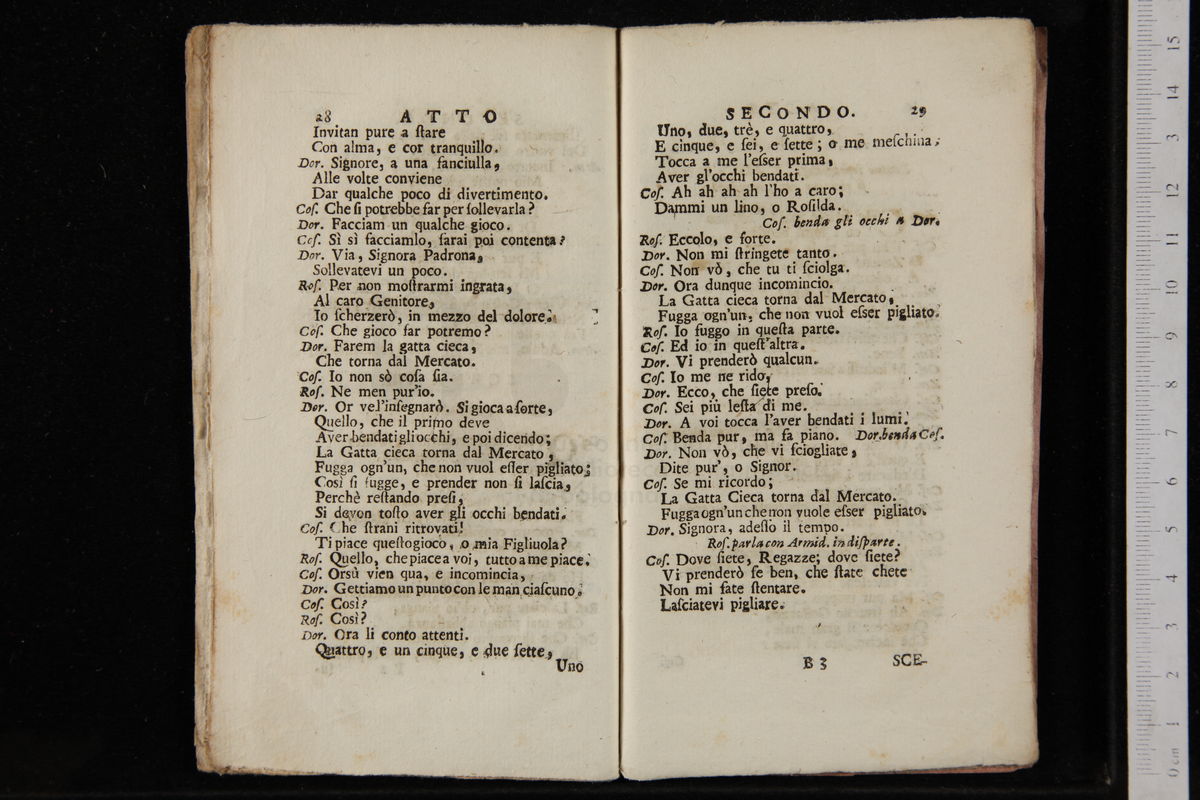 28 ATTO
Invitan pure a ſtare
Con alma, e cor tranquillo.
Dor. Signore, a una fanciulla,
Alle volte conviene
Dar qualche poco di divertimento.
Coſ. Che ſi potrebbe far per ſollevarla?
Dor. Facciam un qualche gioco.
Coſ. Sì sì facciamlo, farai poi contenta?
Dor. Via, Signora Padrona,
Sollevatevi un poco.
Roſ. Per non moſtrarmi ingrata,
Al caro Genitore,
Io ſcherzerò, in mezzo del dolore.
Coſ. Che gioco far potremo?
Dor. Farem la gatta cieca,
Che torna dal Mercato.
Coſ. Io non sò coſa ſia.
Roſ. Ne men pur'io.
Dor. Or vel'inſegnarò. Si gioca a ſorte,
Quello, che il primo deve
Aver bendati gli occhi, e poi dicendo;
La Gatta cieca torna dal Mercato,
Fugga ogn'un, che non vuol eſſer pigliato;
Così ſi fugge, e prender non ſi laſcia,
Perchè reſtando preſi,
Si devon toſto aver gli occhi bendati.
Coſ. Che ſtrani ritrovati!
Ti piace queſto gioco, o mia Figliuola?
Roſ. Quello, che piace a voi, tutto a me piace.
Coſ. Orsù vien qua, e incomincia,
Dor. Gettiamo un punto con le man ciaſcuno.
Coſ. Così?
Roſ. Così?
Dor. Ora li conto attenti.
Quattro, e un cinque, e due ſette,
Uno
SECONDO. 29
Uno, due, trè, e quattro,
E cinque, e ſei, e ſette; o me meſchina;
Tocca a me l'eſser prima,
Aver gl'occhi bendati.
Coſ. Ah ah ah ah l'ho a caro;
Dammi un lino, o Roſilda.
Coſ. benda gli occhi a Dor.
Roſ. Eccolo, e forte.
Dor. Non mi ſtringete tanto.
Coſ. Non vò, che tu ti ſciolga.
Dor. Ora dunque incomincio.
La Gatta cieca torna dal Mercato,
Fugga ogn'un, che non vuol eſser pigliato.
Roſ. Io fuggo in queſta parte.
Coſ. Ed io in queſt'altra.
Dor. Vi prenderò qualcun.
Coſ. Io me ne rido,
Dor. Ecco, che ſiete preſo.
Coſ. Sei più leſta di me.
Dor. A voi tocca l'aver bendati i lumi.
Coſ. Benda pur, ma fa piano. Dor. benda Coſ.
Dor. Non vò, che vi ſciogliate,
Dite pur', o Signor.
Coſ. Se mi ricordo;
La Gatta Cieca torna dal Mercato.
Fugga ogn'un che non vuole eſser pigliato.
Dor. Signora, adeſſo il tempo.
Roſ. parla con Armid. in diſparte.
Coſ. Dove ſiete, Regazze; dove ſiete?
Vi prenderò ſe ben, che ſtate chete
Non mi fate ſtentare.
Laſciatevi pigliare.
B 3 SCE-
0 cm 1 2 3 4 5 6 7 8 9 10 11 12 13 14 15